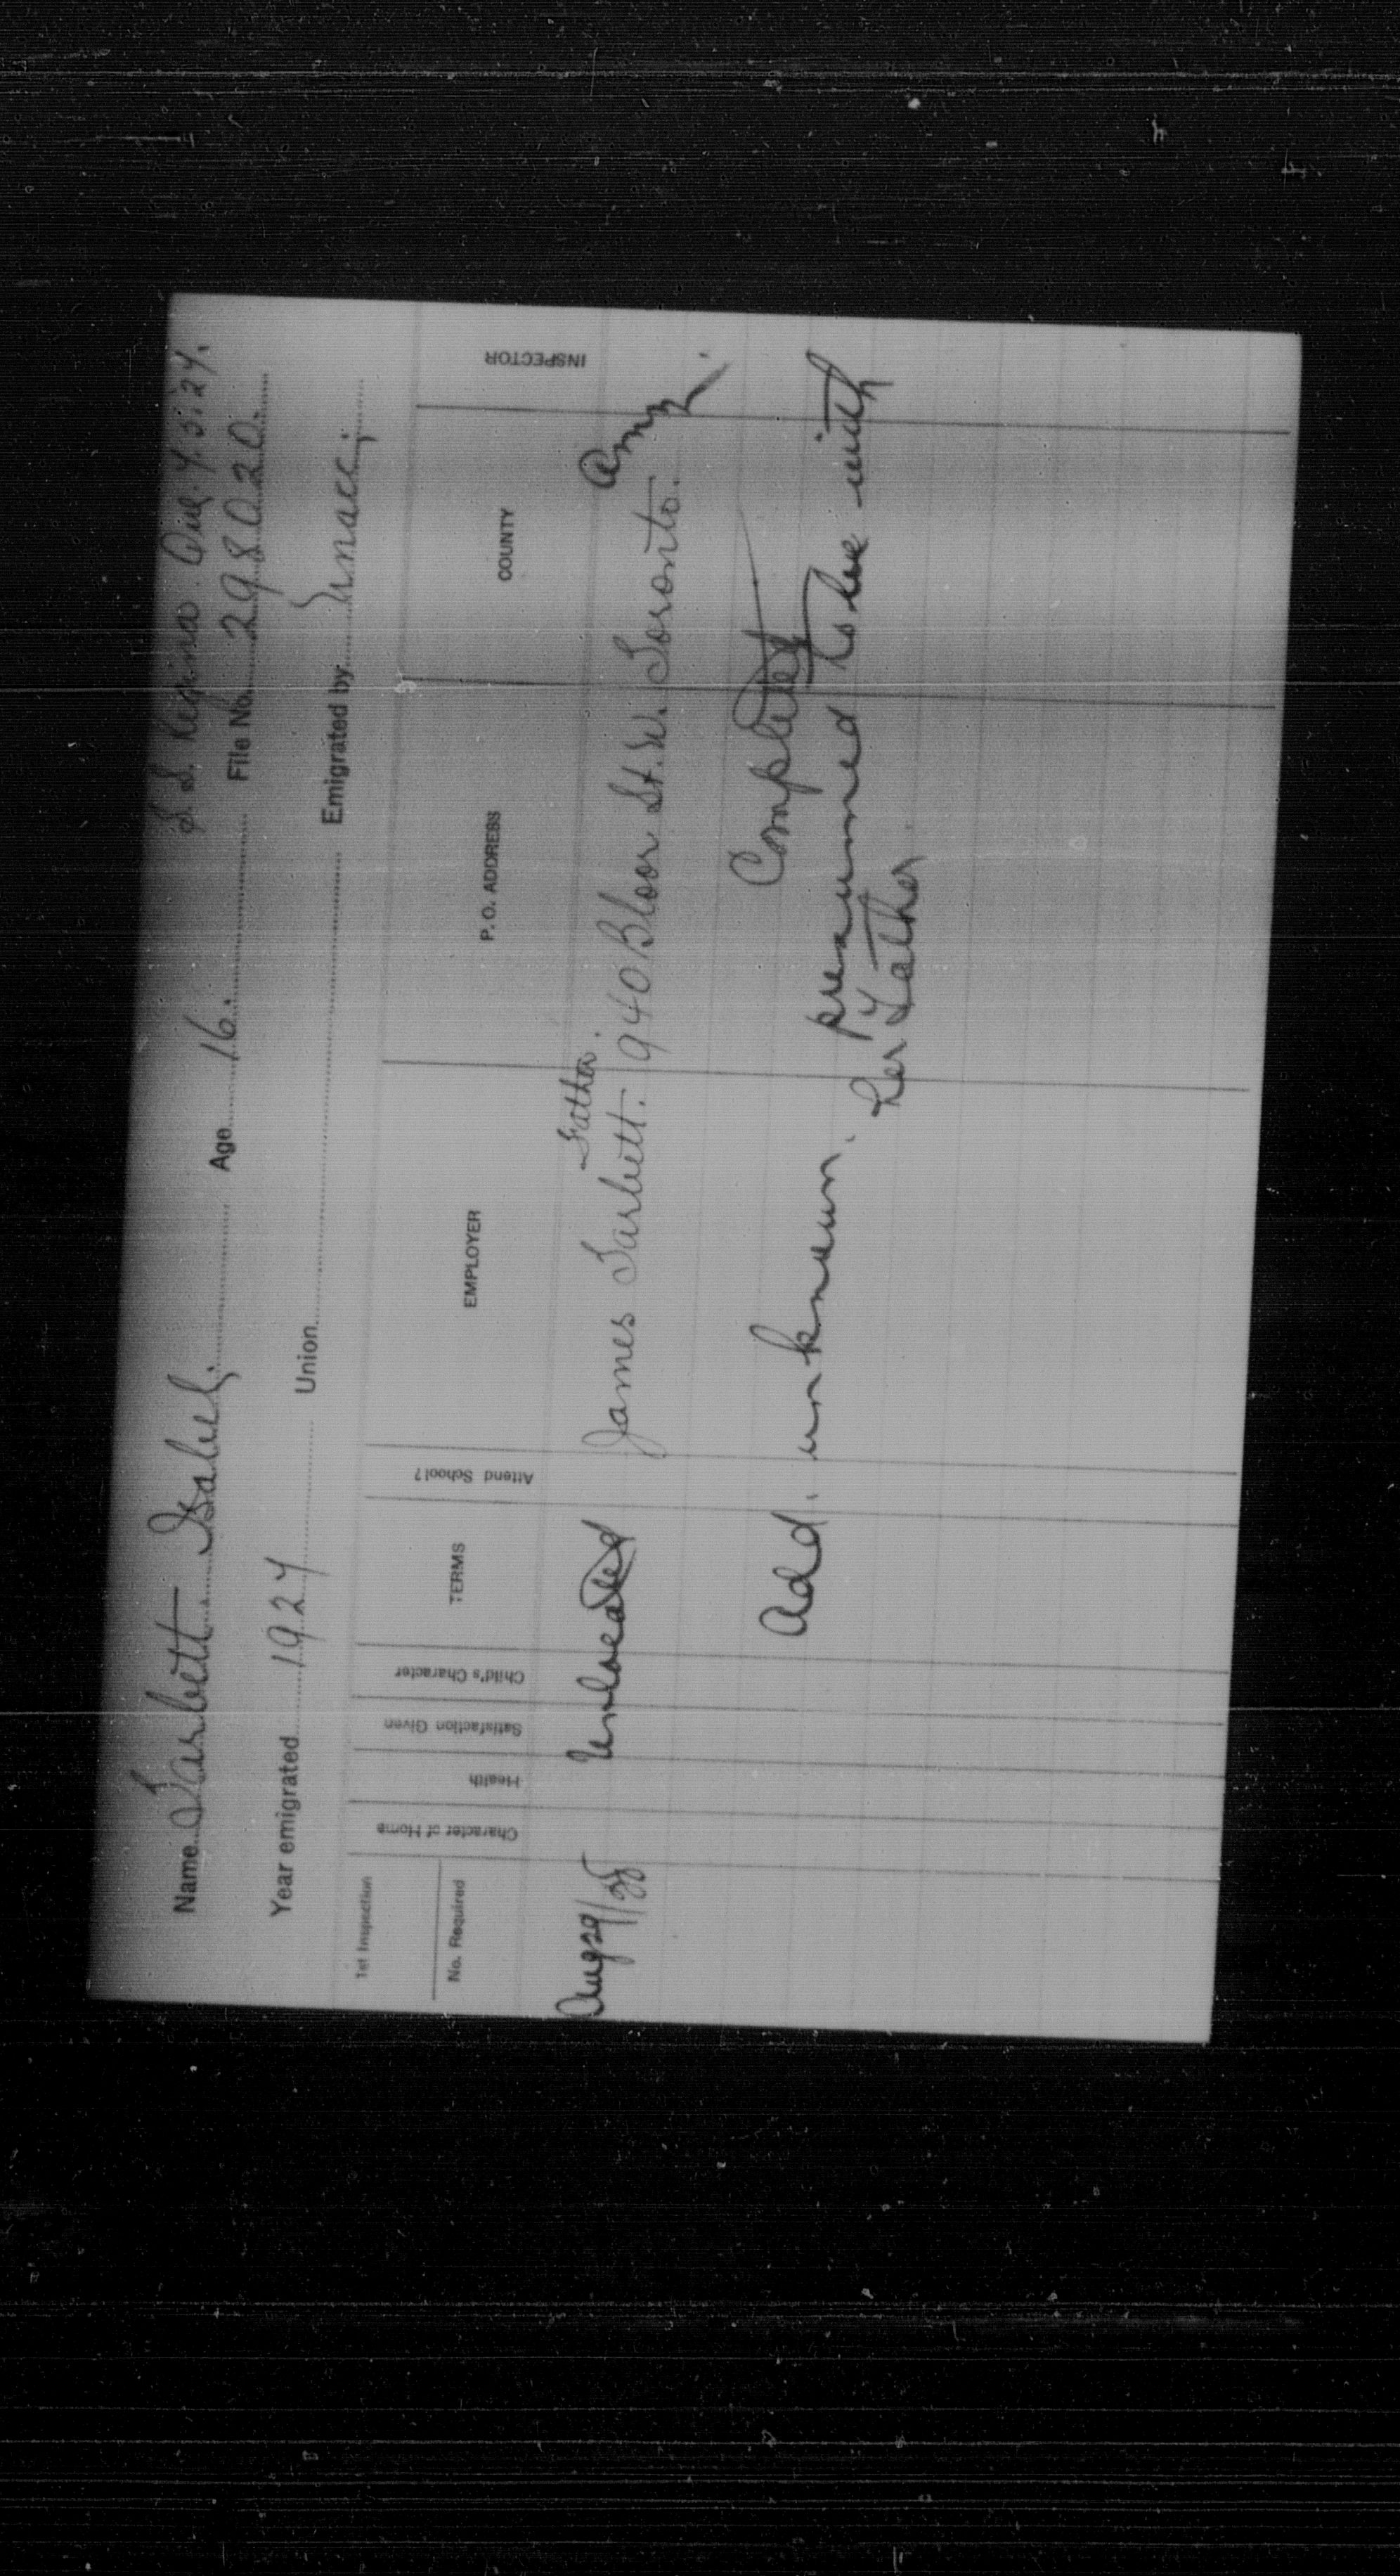 S. S. Regina. Que. 4.5.24.
Name Tarbett Isabel. Age 16. File No. 298020.
Year emigrated 1924 Union Emigrated by
1st Inspection
No. Required
Character of Home
Health
Satisfaction Given
Child's Character
TERMS
Attend School?
EMPLOYER
P. O. ADDRESS
COUNTY
INSPECTOR
Father.
Unlocated James Tarbett. 940 Bloor St. W. Toronto.
Completed
Add. unknown. presumed to be with
her Father